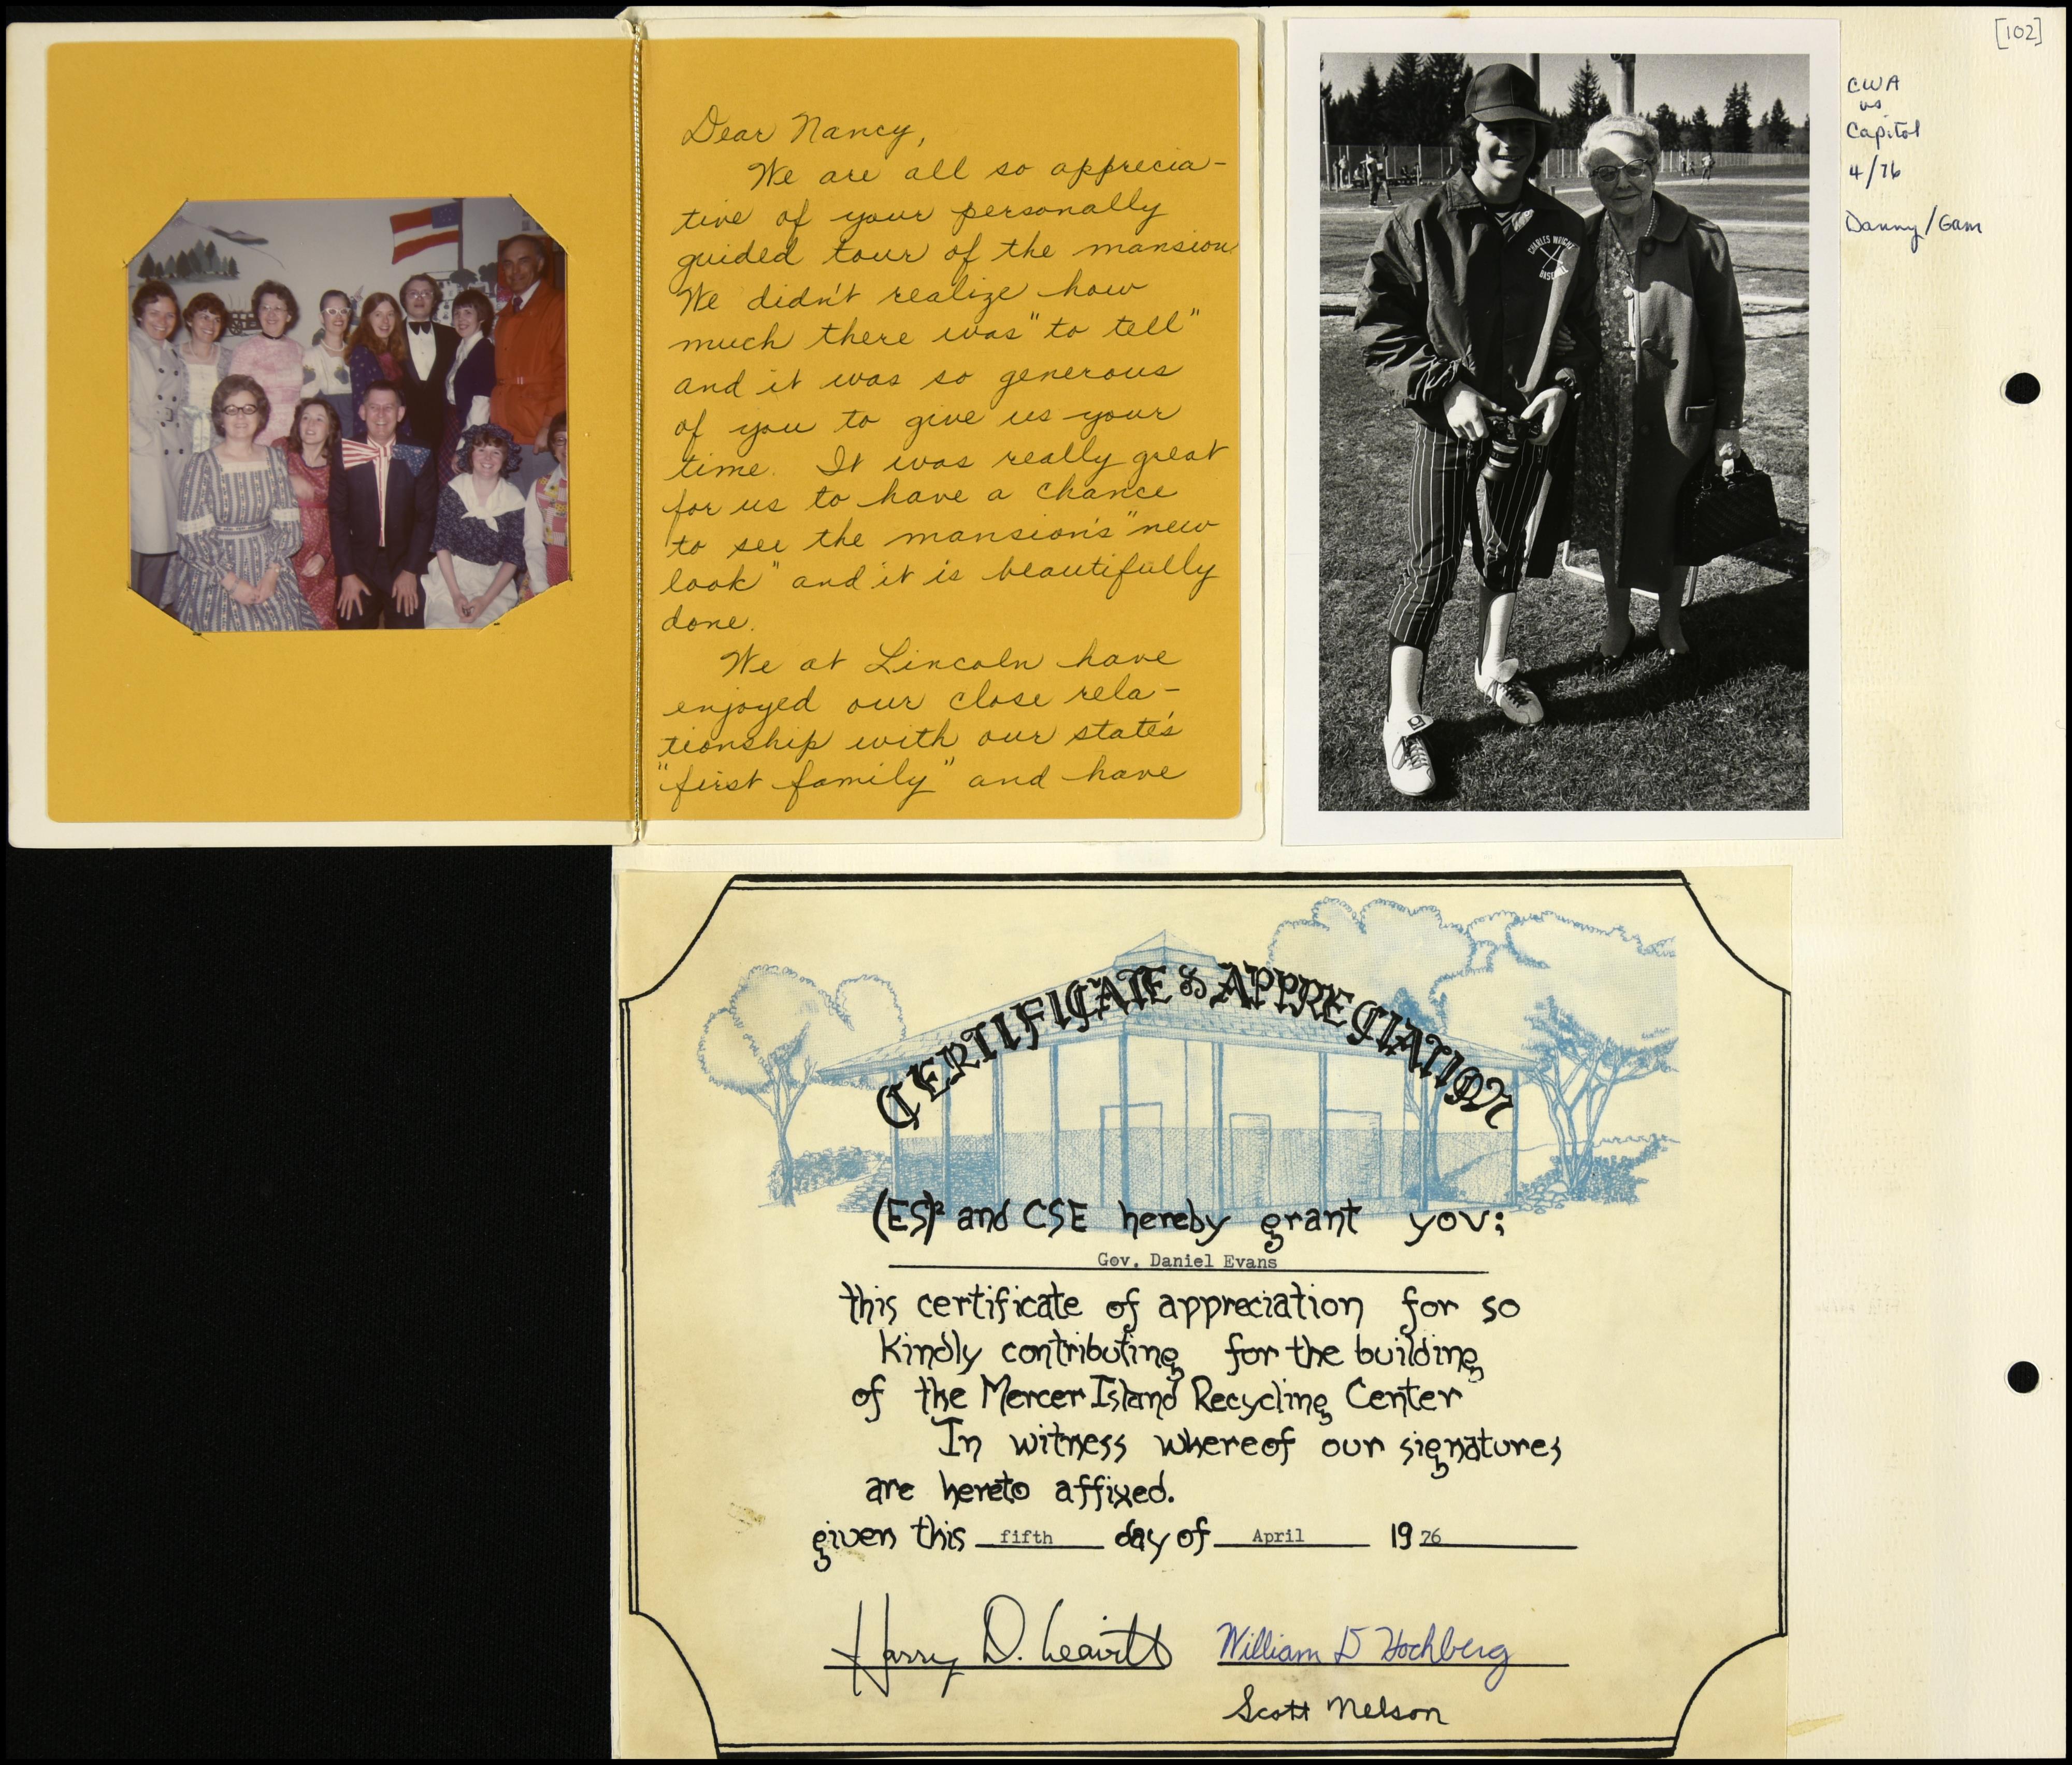 [102]
Dear Nancy,
We are all so apprecia-
tive of your personally
guided tour of the mansion.
We didn't realize how
much there was "to tell"
and it was so generous
of you to give us your
time. It was really great
for us to have a chance
to see the mansion's "new
look" and it is beautifully
done.
We at Lincoln have
enjoyed our close rela-
tionship with our state's
"first family" and have
CHARLES WRIGHT
BASEBALL
CWA
vs
Capitol
4/76
Danny/Gam
CERTIFICATE OF APPRECIATION
(ES)² and CSE hereby grant you;
Gov. Daniel Evans
this certificate of appreciation for so
kindly contributing for the building
of the Mercer Island Recycling Center
In witness whereof our signatures
are hereto affixed.
given this fifth day of April 1976
Harry D. Leavitt William D Hochberg
Scott Nelson